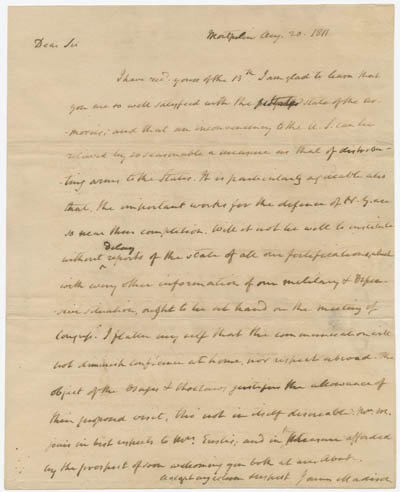 Montpelier Aug. 20. 1811
Dear Sir
I have recd. yours of the 13th. I am glad to learn that
you are so well satisfied with the state of the ar-
mories; and that an inconveniency to the U. S. can be
relieved by so reasonable a measure as that of distribu-
ting arms to the States. It is particularly agreeable also
that, the important works for the defence of N. Y. are
so near their completion. Will it not be well to institute
without Delay reports of the state of all our fortifications, which
with every other information of our military & defen-
sive situation, ought to be at hand on the meeting of
Congs. I flatter myself that the communication will
not diminish confidence at home, nor respect abroad. The
object of the Osages & Choctaws justifies the allowance of
their proposed visit, tho' not in itself desireable. Mrs. M.
joins in best respects to Mrs. Eustis, and in the pleasure afforded
by the prospect of soon welcoming you both at our Abode.
Accept my esteem & respect James Madison